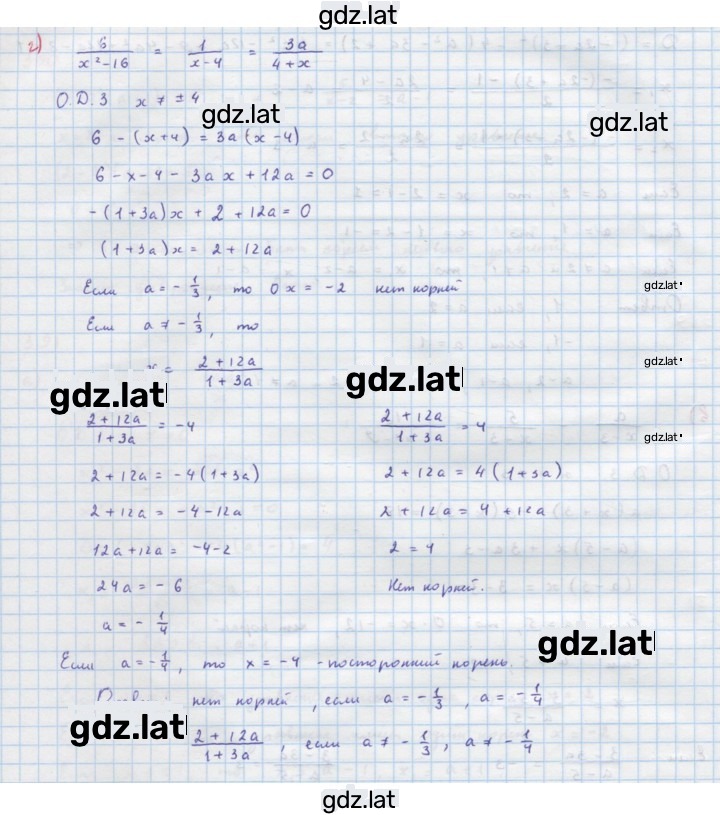 gdz.lat
г) 6/(x²-16) = 1/(x-4) = 3a/(4+x)
О.Д.З x ≠ ±4
gdz.lat
gdz.lat
6 - (x+4) = 3a (x-4)
6 - x - 4 - 3ax + 12a = 0
-(1+3a)x + 2 + 12a = 0
(1+3a)x = 2 + 12a
Если a = -1/3, то 0x = -2 нет корней
gdz.lat
Если a ≠ -1/3, то
x = (2+12a)/(1+3a)
gdz.lat
gdz.lat
gdz.lat
(2+12a)/(1+3a) = -4
(2+12a)/(1+3a) = 4
gdz.lat
2+12a = -4(1+3a)
2+12a = 4(1+3a)
2+12a = -4-12a
2+12a = 4+12a
12a+12a = -4-2
2 = 4
24a = -6
Нет корней.
a = -1/4
gdz.lat
Если a = -1/4, то x = -4 - посторонний корень.
нет корней, если a = -1/3, a = -1/4
gdz.lat
(2+12a)/(1+3a), если a ≠ -1/3, a ≠ -1/4
gdz.lat